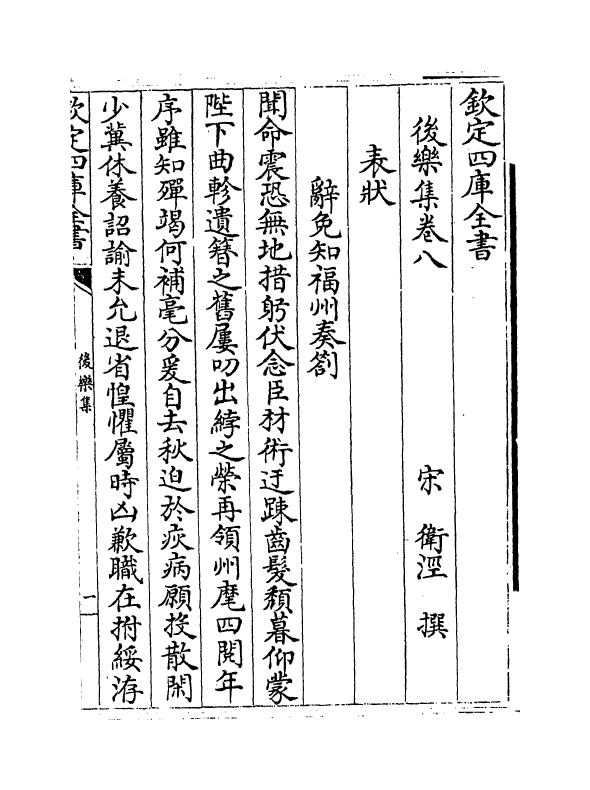 欽定四庫全書
後樂集卷八
宋 衛涇 撰
表狀
辭免知福州奏劄
聞命震恐無地措躬伏念臣材術迂踈齒髮頹暮仰蒙
陛下曲軫遺簪之舊屢叨出綍之榮再領州麾四閱年
序雖知殫竭何補毫分爰自去秋迫於疾病願投散閑
少冀休養詔諭未允退省惶懼屬時凶歉職在拊綏洊
欽定四庫全書
後樂集
一